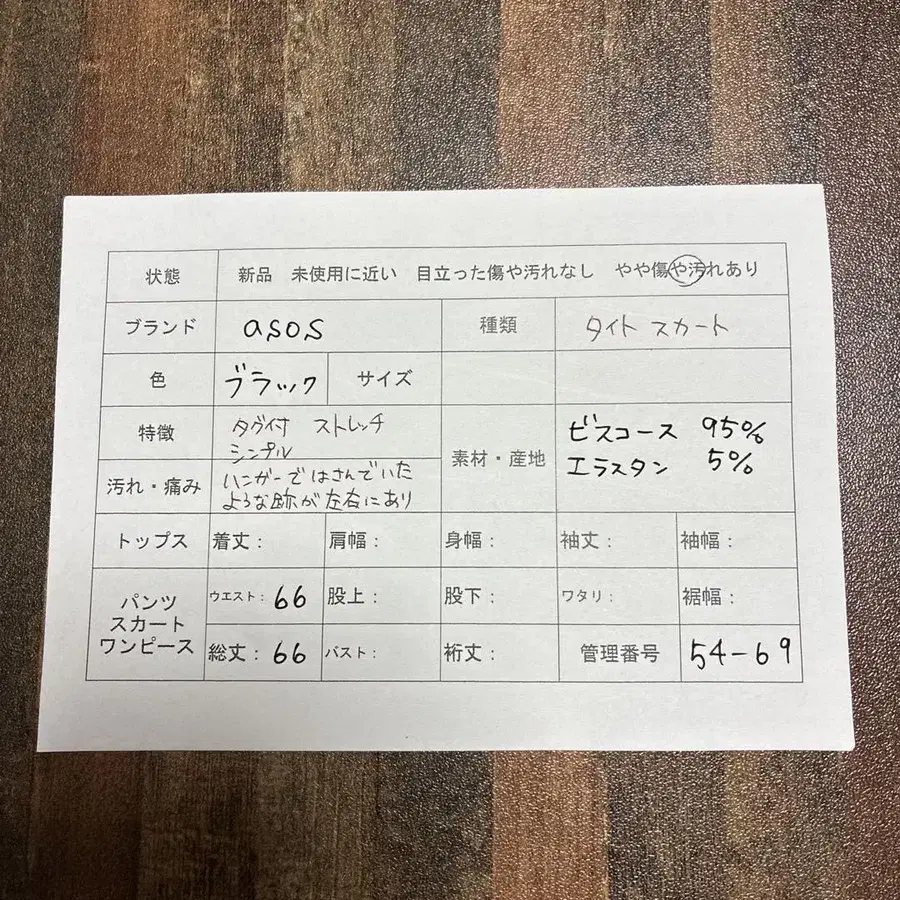 状態 新品 未使用に近い 目立った傷や汚れなし やや傷や汚れあり
ブランド asos 種類 タイトスカート
色 ブラック サイズ
特徴 タグ付 ストレッチ
シンプル
素材・産地 ビスコース 95%
エラスタン 5%
汚れ・痛み ハンガーではさんでいた
ような跡が左右にあり
トップス 着丈: 肩幅: 身幅: 袖丈: 袖幅:
パンツ
スカート
ワンピース
ウエスト: 66 股上: 股下: ワタリ: 裾幅:
総丈: 66 バスト: 裄丈: 管理番号 54-69